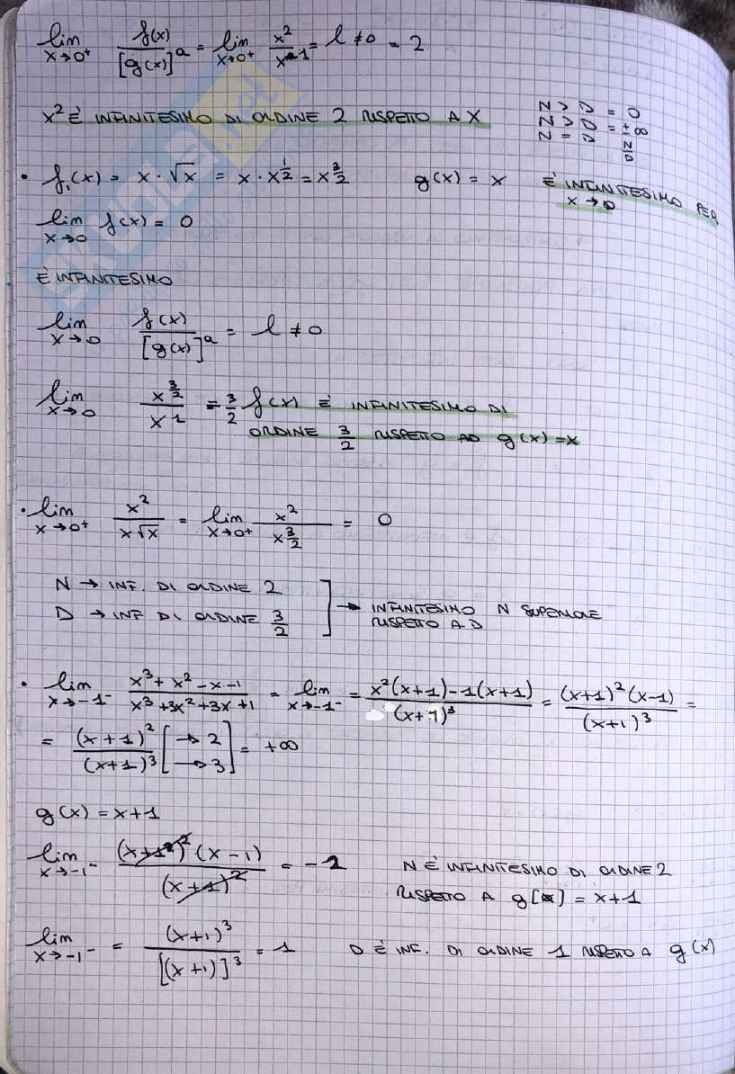 lim x→0⁺ f(x)/[g(x)]^a = lim x→0⁺ x²/x^1 = l ≠0 = 2
x² È INFINITESIMO DI ORDINE 2 RISPETTO A X
N > D = 0
N > D = ±∞
N = D = N/D
• f₁(x) = x · √x = x · x^(1/2) = x^(3/2) g(x) = x È INFINITESIMO PER x→0
lim x→0 f(x) = 0
È INFINITESIMO
lim x→0 f(x)/[g(x)]^a = l ≠ 0
lim x→0 x^(3/2)/x^1 = 3/2 f(x) È INFINITESIMO DI
ORDINE 3/2 RISPETTO AD g(x) = x
• lim x→0⁺ x²/(x√x) = lim x→0⁺ x²/x^(3/2) = 0
N → INF. DI ORDINE 2
D → INF DI ORDINE 3/2
→ INFINITESIMO N SUPERIORE
RISPETTO A D
• lim x→-1⁻ (x³+x²-x-1)/(x³+3x²+3x+1) = lim x→-1⁻ = (x²(x+1)-1(x+1))/(x+1)³ = ((x+1)²(x-1))/(x+1)³ =
= (x+1)²/(x+1)³ [→2 →3] = +∞
g(x) = x+1
lim x→-1⁻ ((x+1)²(x-1))/(x+1)² = -2 N È INFINITESIMO DI ORDINE 2
RISPETTO A g(x) = x+1
lim x→-1⁻ = (x+1)³/[(x+1)]³ = 1 D È INF. DI ORDINE 1 RISPETTO A g(x)
SKUOLA.net